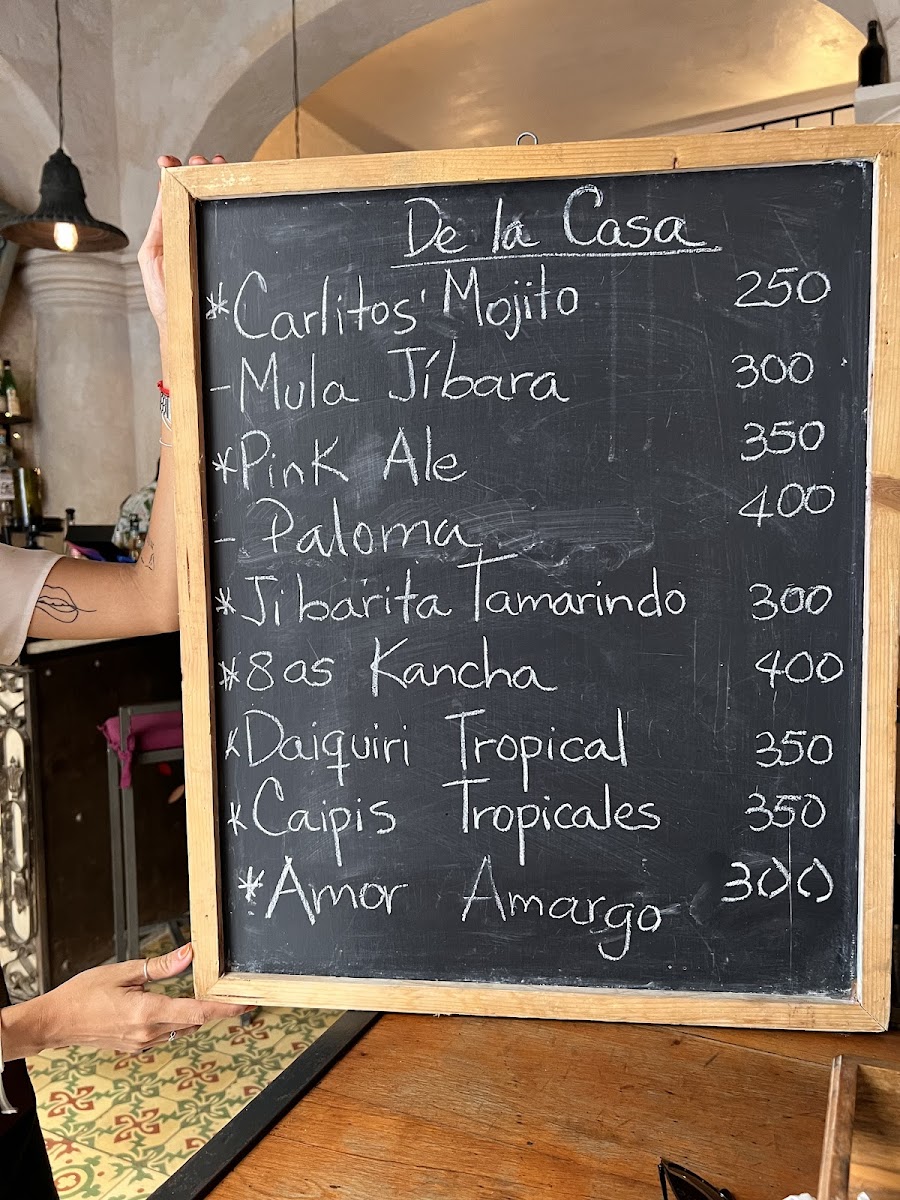 De la Casa
*Carlitos' Mojito 250
-Mula Jíbara 300
*Pink Ale 350
- Paloma 400
*Jibarita Tamarindo 300
*8as Kancha 400
*Daiquiri Tropical 350
*Caipis Tropicales 350
*Amor Amargo 300